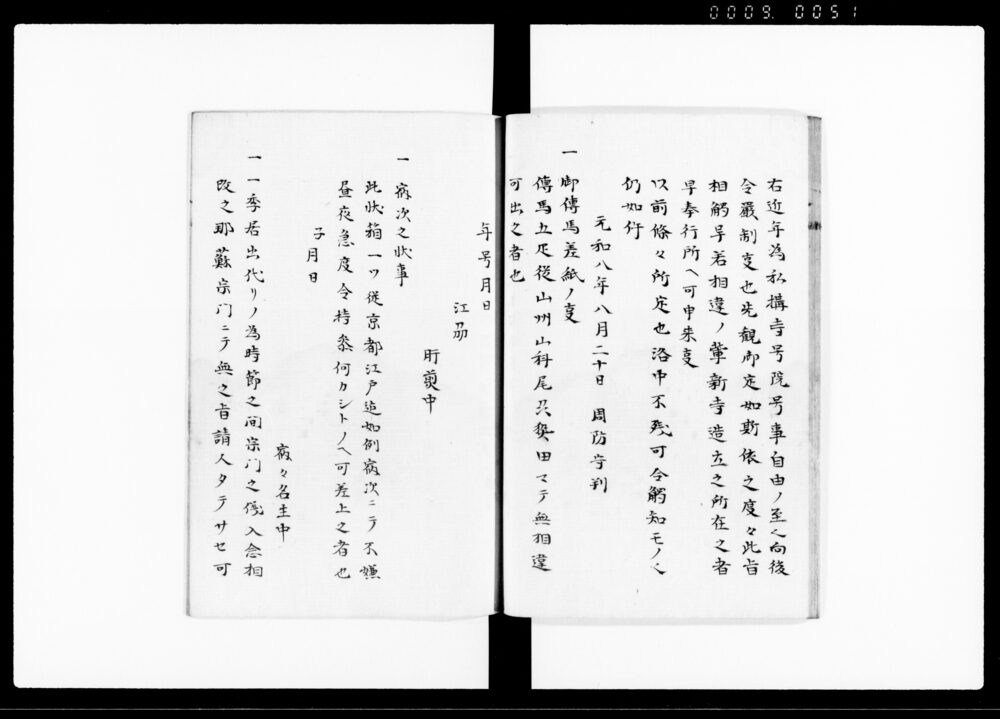 0009 0051
右近年為私搆寺号院号事自由ノ至也向後
令嚴制㕝也先観御定如斯依之度々此旨
相觸早若相違ノ輩新寺造立之所在之者
早奉行所ヘ可申来㕝
以前條々所定也洛中不残可令觸知モノ也
仍如件
元和八年八月二十日 周防守判
一 御傳馬差紙ノ㕝
傳馬五疋従山州山科尾州熱田マテ無相違
可出之者也
年号月日
江刕
肝煎中
一 宿次之状事
此状箱一ツ従京都江戸迠如例宿次ニテ不嫌
昼夜急度令持参何カシトノヘ可差上之者也
子月日
宿々名主中
一 一季居出代リノ為時節之间宗门之儀入念相
改之耶蘇宗门ニテ無之旨請人タテサセ可